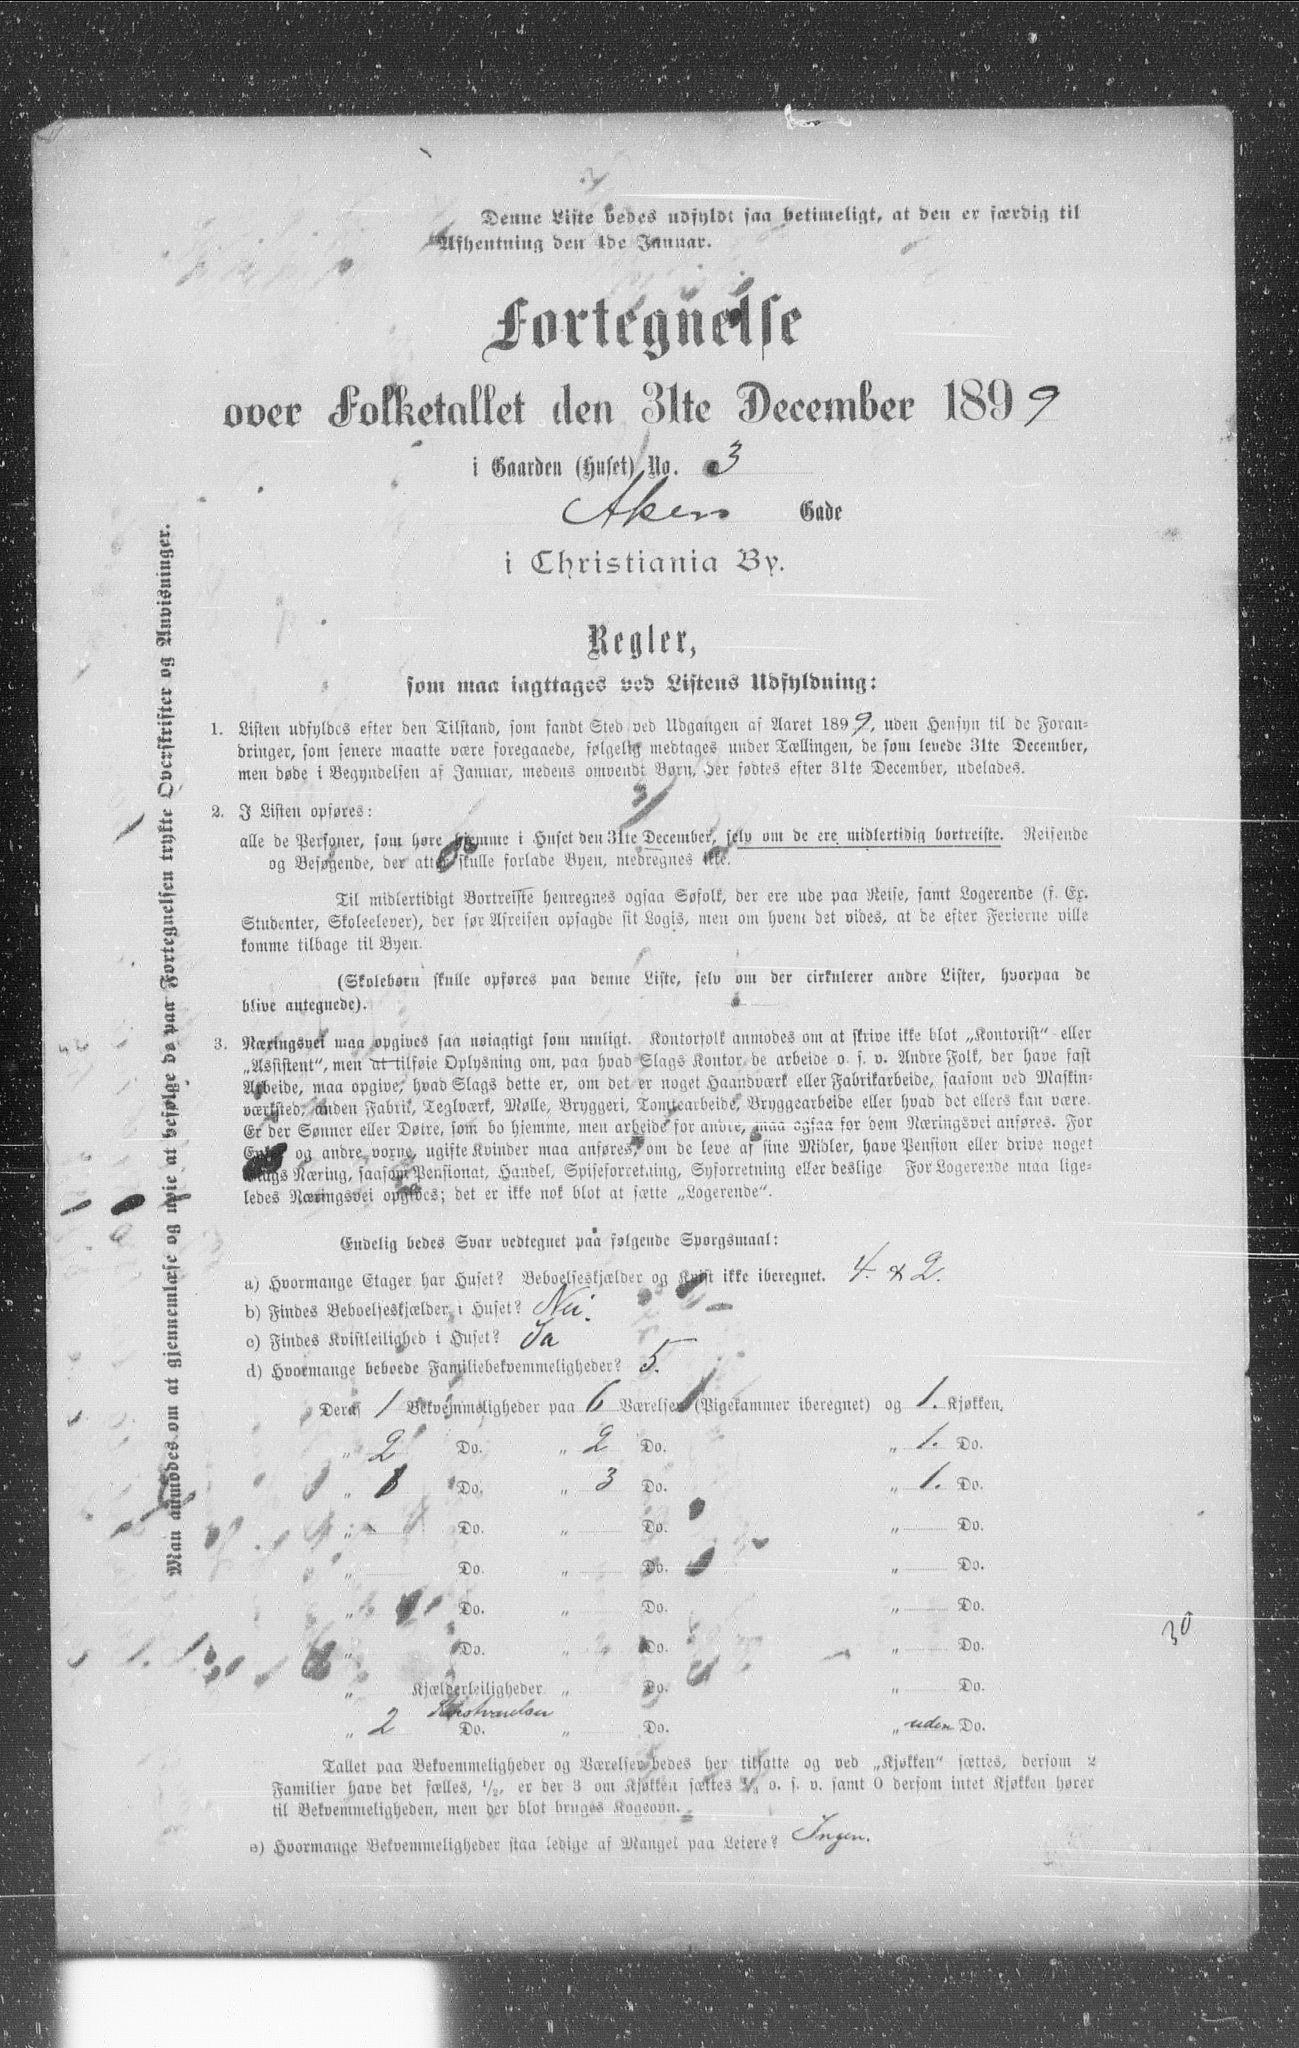 Denne Liste bedes udfyldt saa betimeligt, at den er færdig til
Afhentning den 4de Januar.
Fortegnelse
over Folketallet den 31te December 1899
i Gaarden (Huset) No. 3
Akers Gade
i Christiania By.
Regler,
som maa iagttages ved Listens Udfyldning:
1. Listen udfyldes efter den Tilstand, som fandt Sted ved Udgangen af Aaret 1899, uden Hensyn til de Foran-
dringer, som senere maatte være foregaaede, følgelig medtages under Tællingen, de som levede 31te December,
men døde i Begyndelsen af Januar, medens omvendt Børn, der fødtes efter 31te December, udelades.
2. I Listen opføres:
alle de Personer, som høre hjemme i Huset den 31te December, selv om de ere midlertidig bortreiste. Reisende
og Besøgende, der atter skulle forlade Byen, medregnes ikke.
Til midlertidigt Bortreiste henregnes ogsaa Søfolk, der ere ude paa Reise, samt Logerende (f. Ex.
Studenter, Skoleelever), der før Afreisen opsagde sit Logis, men om hvem det vides, at de efter Ferierne ville
komme tilbage til Byen.
(Skolebørn skulle opføres paa denne Liste, selv om der cirkulerer andre Lister, hvorpaa de
blive antegnede).
3. Næringsvei maa opgives saa nøiagtigt som muligt. Kontorfolk anmodes om at skrive ikke blot „Kontorist“ eller
„Assistent“, men at tilføie Oplysning om, paa hvad Slags Kontor de arbeide o. s. v. Andre Folk, der have fast
Arbeide, maa opgive, hvad Slags dette er, om det er noget Haandværk eller Fabrikarbeide, saasom ved Maskin-
værksted, anden Fabrik, Teglværk, Mølle, Bryggeri, Tomtearbeide, Bryggearbeide eller hvad det ellers kan være.
Er der Sønner eller Døtre, som bo hjemme, men arbeide for andre, maa ogsaa for dem Næringsvei anføres. For
Enker og andre vorne, ugifte Kvinder maa anføres, om de leve af sine Midler, have Pension eller drive noget
Slags Næring, saasom Pensionat, Handel, Spiseforretning, Syforretning eller deslige For Logerende maa lige-
ledes Næringsvei opgives; det er ikke nok blot at sætte „Logerende“.
Endelig bedes Svar vedtegnet paa følgende Spørgsmaal:
a) Hvormange Etager har Huset? Beboelseskjælder og Kvist ikke iberegnet. 4. & 2.
b) Findes Beboelseskjælder i Huset? Nei.
c) Findes Kvistleilighed i Huset? Ja
d) Hvormange beboede Familiebekvemmeligheder? 5.
Deraf 1 Bekvemmeligheder paa 6 Værelser (Pigekammer iberegnet) og 1. Kjøkken.
„ 2 Do. „ 2 Do. „ 1. Do.
„ 1 Do. „ 3 Do. „ 1. Do.
„ Do. „ Do. „ Do.
„ Do. „ Do. „ Do.
„ Do. „ Do. „ Do.
„ Do. „ Do. „ Do.
„ Kjælderleiligheder „ Do. „ Do.
„ 2 Do. „ Do. „ uden Do.
Tallet paa Bekvemmeligheder og Værelser bedes her tilsatte og ved „Kjøkken“ sættes, dersom 2
Familier have det fælles, 1/2, er der 3 om Kjøkken sættes 1/3 o. s. v. samt 0 dersom intet Kjøkken hører
til Bekvemmeligheden, men der blot bruges Kogeovn.
e) Hvormange Bekvemmeligheder staa ledige af Mangel paa Leiere? Ingen.
Man anmodes om at gjennemlæse og nøie at befølge de paa Fortegnelsen trykte Overskrifter og Anvisninger.
30